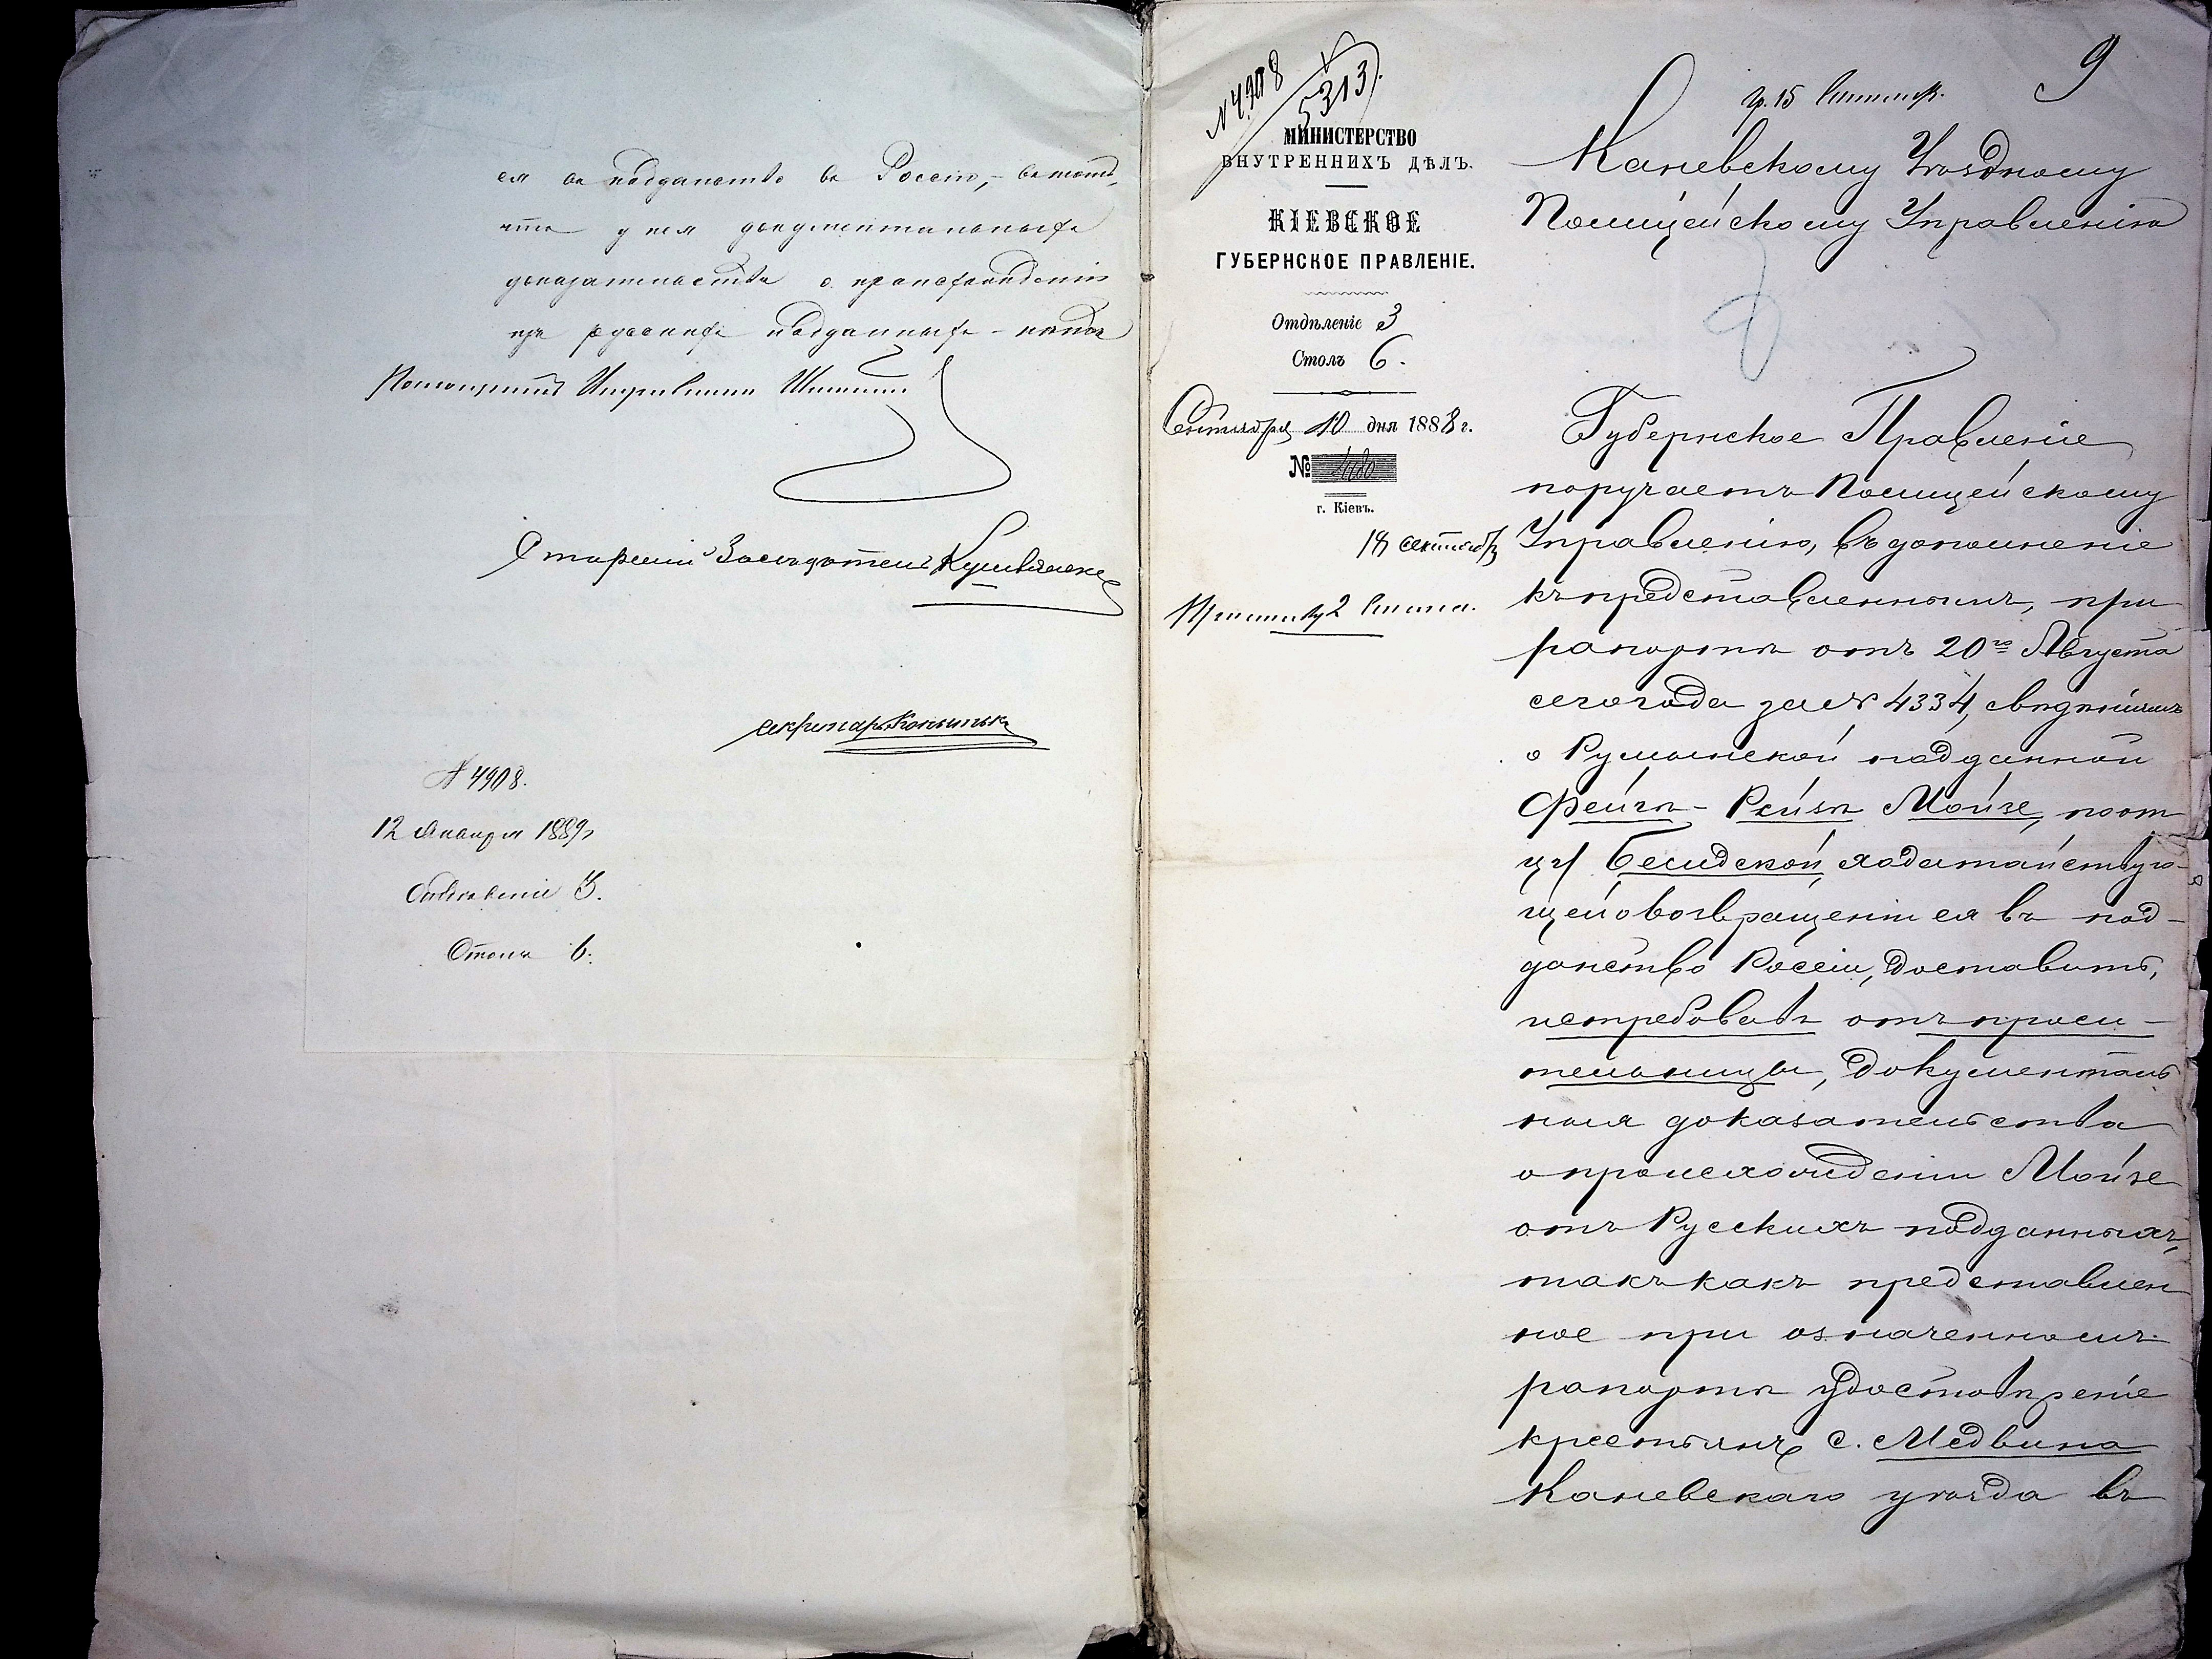 ея въ подданство въ Россію, – въ томъ,
что у нея документальныхъ
доказательствъ о происхожденіи
изъ русскихъ подданныхъ –
Помощникъ Исправника
Старшій Засѣдатель
Секретарь
№ 4908.
12 Января 1889 г
Отдѣленіе 3.
Столъ 6.
9
№ 4908
5313
МИНИСТЕРСТВО
ВНУТРЕННИХЪ ДѢЛЪ.
КІЕВСКОЕ
ГУБЕРНСКОЕ ПРАВЛЕНІЕ.
Отдѣленіе 3
Столъ 6.
Сентября 10 дня 1888 г.
№
г. Кіевъ.
18 сентября
2 Стана.
15
Каневскому Уѣздному
Полицейскому Управленію
Губернское Правленіе
поручаетъ Полицейскому
Управленію, въ дополненіе
къ представленнымъ, при
рапортѣ отъ 20го Августа
сего года за № 4334, свѣдѣніямъ
о Румынской подданной
Фейгѣ-Рейзѣ Мойзе, по от
цу Бенидской, ходатайствую-
щей о возвращеніи ея въ под-
данство Россіи, доставить,
истребовавъ отъ проси-
тельницы, документаль
ныя доказательства
о происхожденіи Мойзе
отъ Русскихъ подданныхъ,
такъ какъ представлен
ное при означенномъ
рапортѣ удостовѣреніе
крестьянъ с. Медвина
Каневскаго уѣзда въ